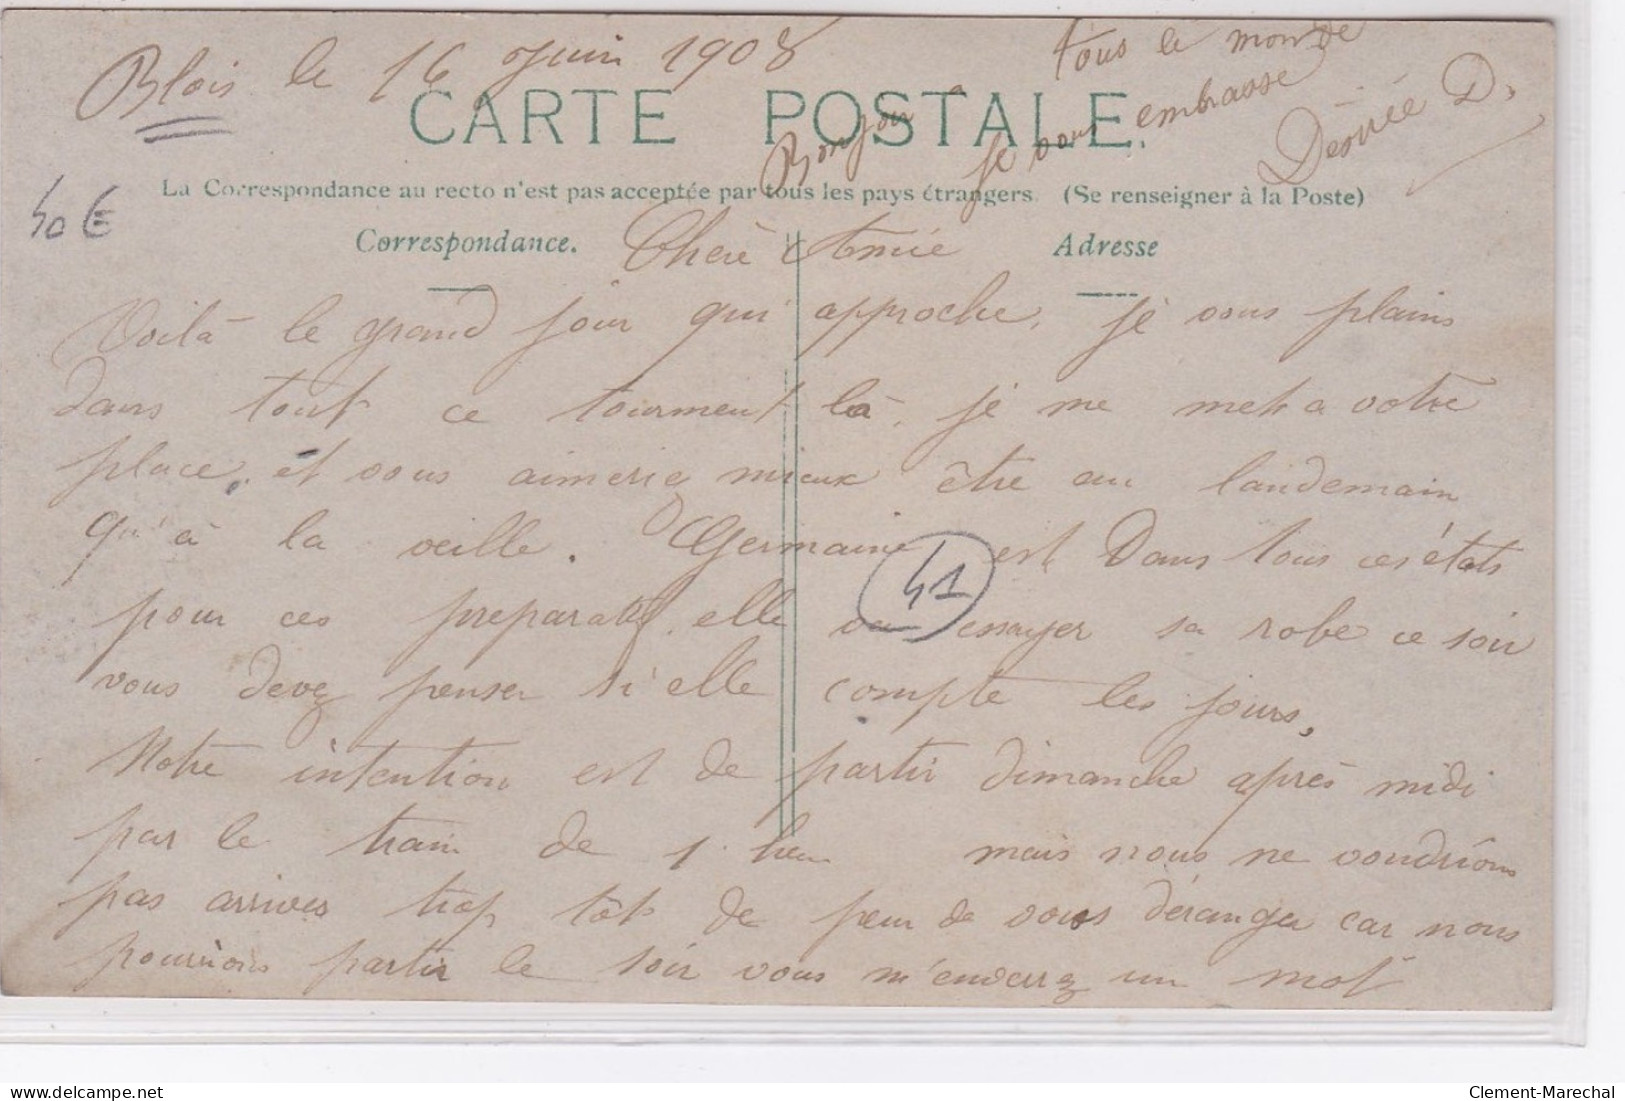 Blois le 16 Juin 1908
tous le monde
Bonjour
Je vous embrasse
Désirée D.
CARTE POSTALE.
La Correspondance au recto n'est pas acceptée par tous les pays étrangers. (Se renseigner à la Poste)
40 €
Correspondance.
Adresse
Chère Amie
Voilà le grand jour qui approche, je vous plains
dans tout ce tourment là, je me mets a votre
place, et vous aimerie mieux être au landemain
qu'à la veille. Germaine est Dans tous ces états
41
pour ces preparatifs, elle va essayer sa robe ce soir
vous devez penser si elle compte les jours,
Notre intention est de partir dimanche après midi
par le train de 1 heu mais nous ne voudrions
pas arrives trop tôt de peur de vous déranger car nous
pourrions partir le soir vous m'enverrez un mot
Clement-Marechal